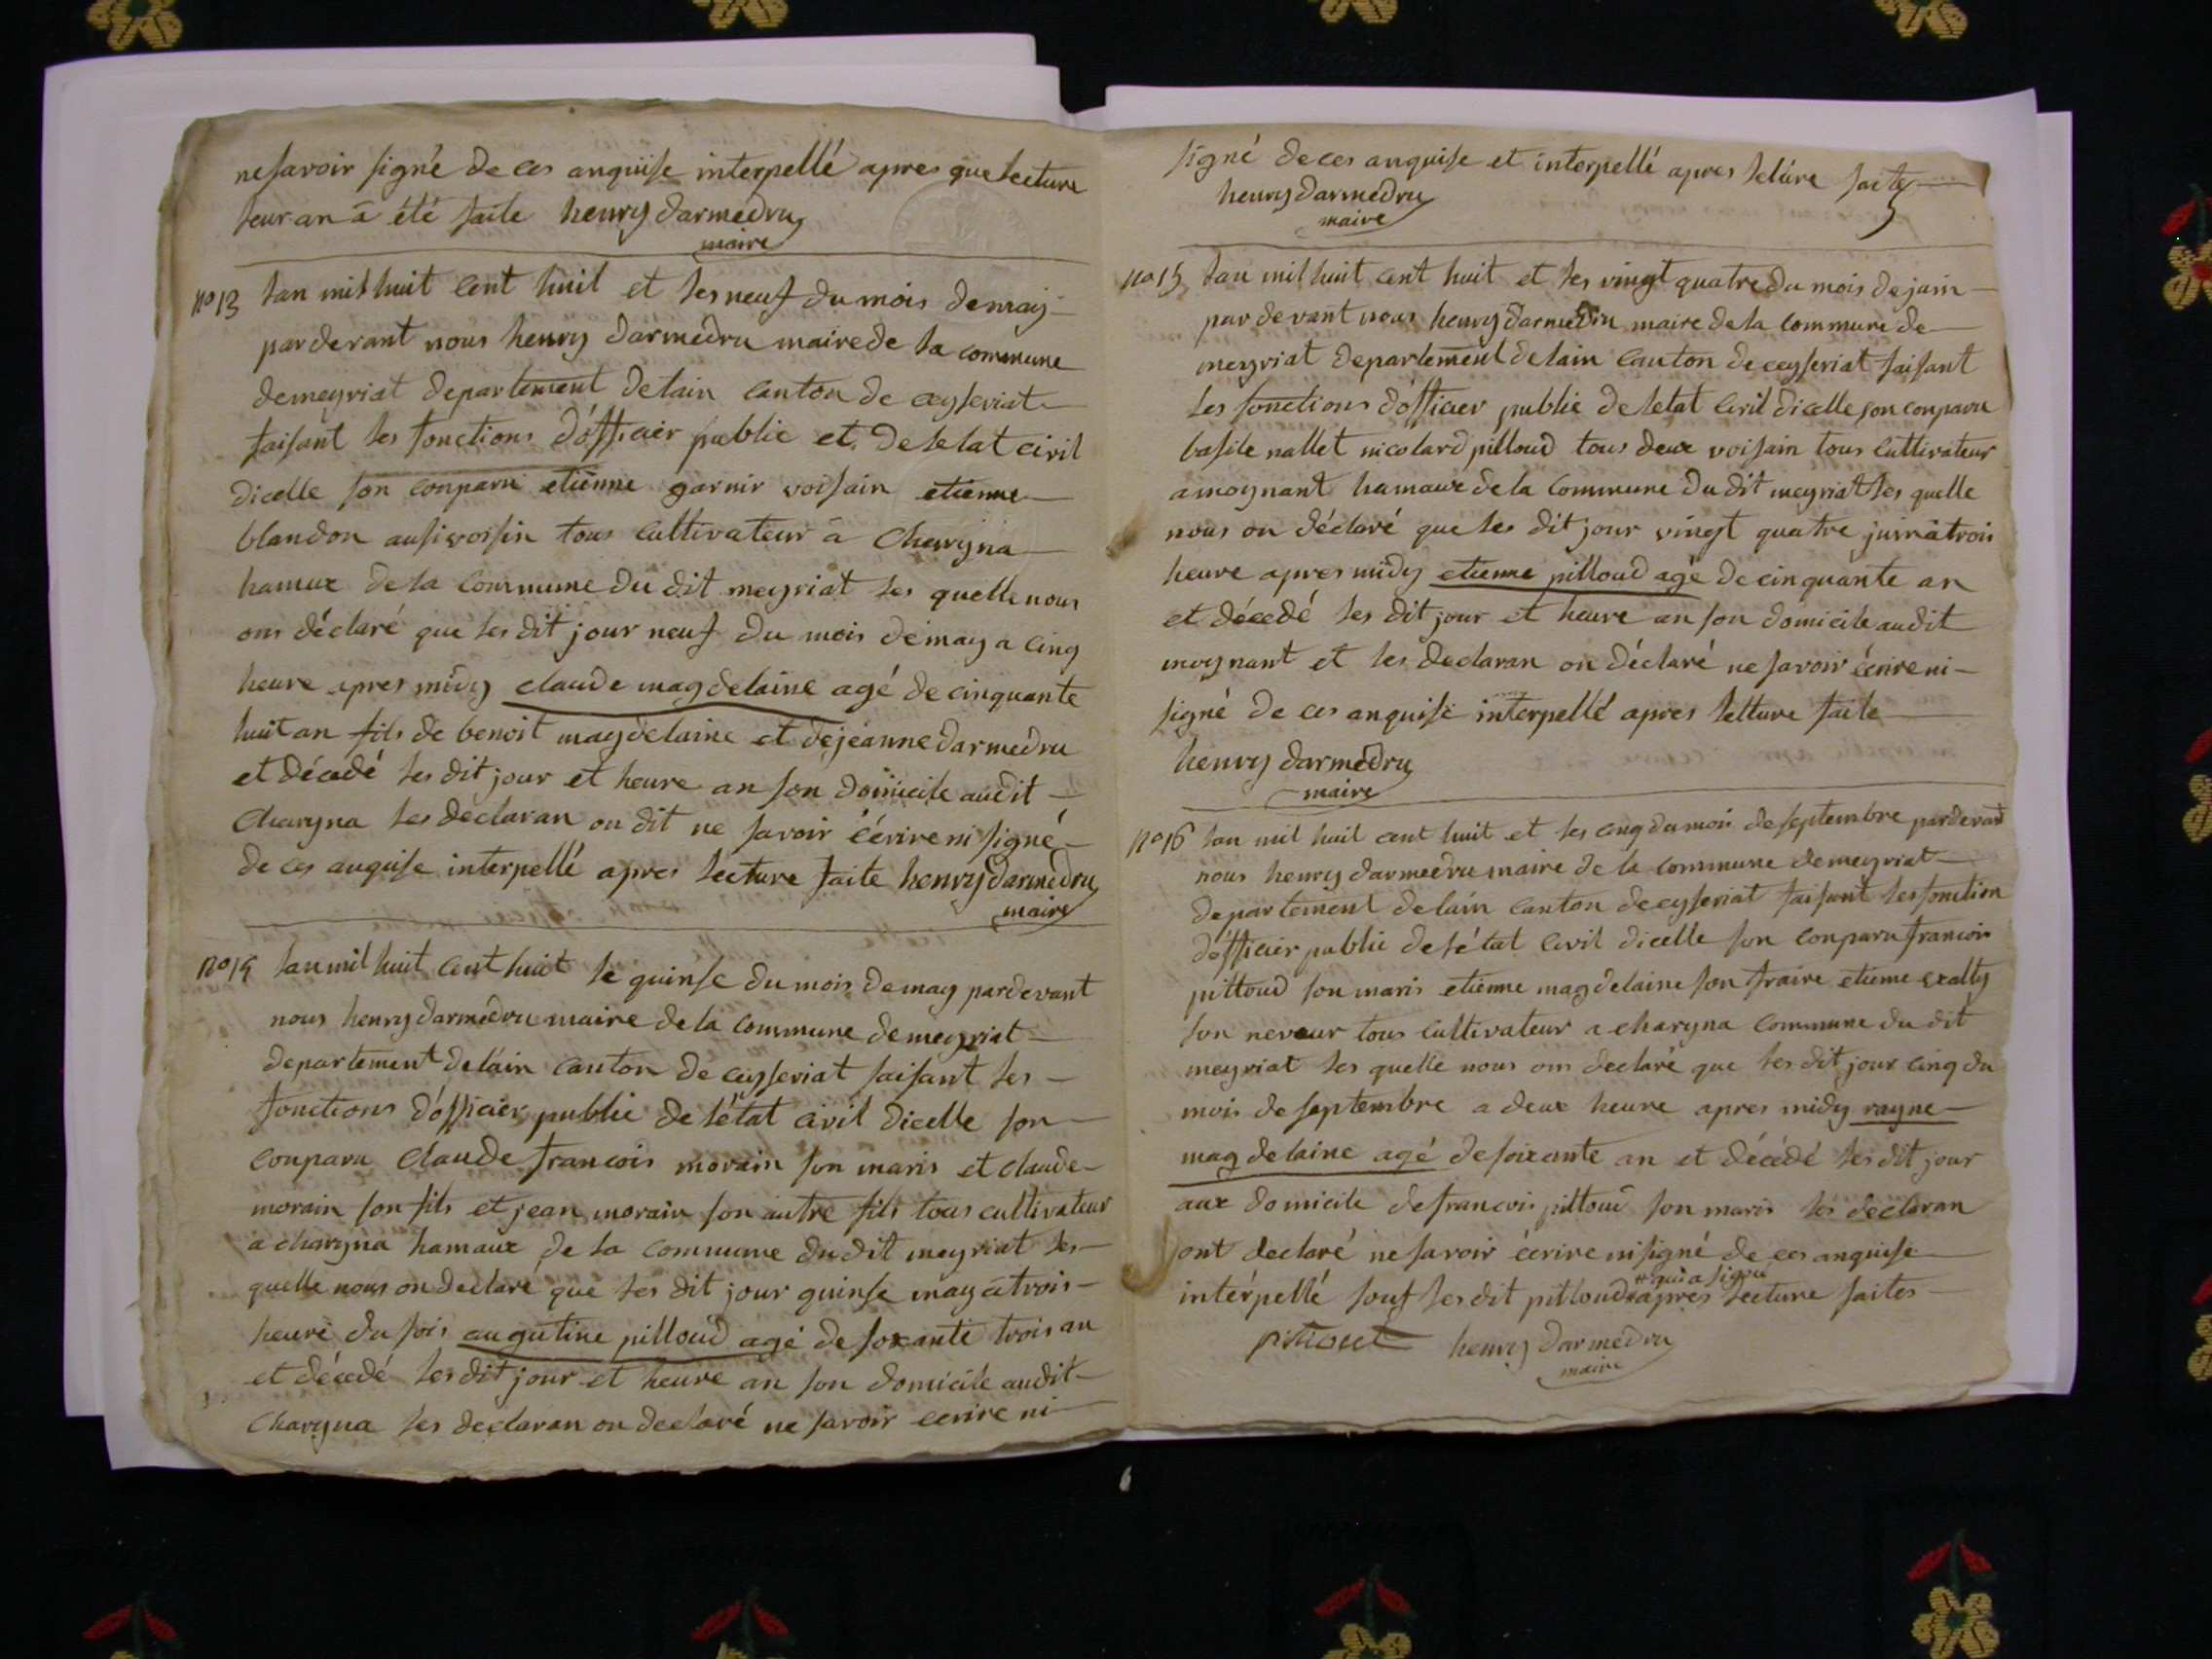 ne savoir signé de ces anquise interpellé apres que lecture
leur an à été faite henry darmedru
maire
no 13 lan mil huit cent huit et les neuf du mois de may
par devant nous henry darmedru maire de la commune
de meyriat departement de lain canton de ceyseriat
faisant les fonctions d'officier public et de letat civil
dicelle son conparu etienne garnir voisain etienne
blandon ausi voisin tous cultivateur à Charyna
hamux de la commune du dit meyriat les quelle nous
ons déclaré que les dit jour neuf du mois de may a cinq
heure apres midy claude magdelaine agé de cinquante
huit an fils de benoit magdelaine et de jeanne darmedru
et décédé les dit jour et heure an son domicile audit
Charyna les declaran on dit ne savoir éérire ni signé
de ces anquise interpellé apres lecture faite henry darmedru
maire
no 14 lan mil huit cent huit le quinse du mois de may pardevant
nous henry darmedru maire de la commune de meyriat
departement de lain canton de ceyseriat faisant les
fonctions d'officier public de létat civil dicelle son
conparu Claude francois morain son maris et claude
morain son fils et jean morain son autre fils tous cultivateur
a charyna hamaux de la commune du dit meyriat les
quelle nous on declaré que les dit jour quinse may à trois
heure du soir augutine pilloud agé de soxante trois an
et décédé les dit jour et heure an son domicile audit
Charyna les declaran on declaré ne savoir ecrire ni
signé de ces anquise et interpellé apres leture faite
henry darmedru
maire
no 15 lan mil huit cent huit et les vingt quatre du mois de juin
par devant nous henry darmedru maire de la commune de
meyriat departement de lain canton de ceyseriat faisant
les fonctions d'officier public de letat civil dicelle son conparu
basile nallet nicolard pilloud tous deux voisain tous cultivateur
a moynant hamaux de la commune du dit meyriat les quelle
nous on déclaré que les dit jour vingt quatre juin à trois
heure apres midy etienne pilloud agé de cinquante an
et décédé les dit jour et heure an son domicile audit
moynant et les declaran on déclaré ne savoir écrire ni
signé de ces anquise interpellé apres letture faite
henry darmedru
maire
no 16 lan mil huit cent huit et les cinq du mois de septembre pardevant
nous henry darmedru maire de la commune de meyriat
departement de lain canton de ceyseriat faisant les fonction
d'officier public de létat civil dicelle son conparu francois
pilloud son maris etienne magdelaine son fraire etienne
son neveur tous cultivateur a charyna commune du dit
meyriat les quelle nous ons declaré que les dit jour cinq du
mois de septembre a deux heure apres midy rayne
magdelaine agé de soixante an et décédé les dit jour
aux domicile de francois pilloud son maris les declaran
ont declaré ne savoir écrire ni signé de ces anquise
# qui a signé
intérpellé souf les dit pilloud # apres lecture faites
pilloud henry darmedru
maire